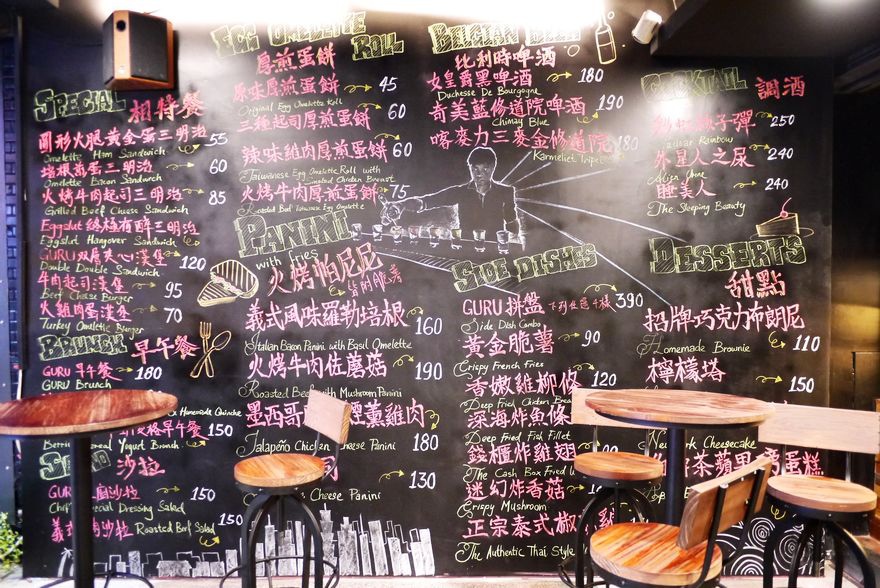 SPECIAL 相待餐
圓形火腿黃金蛋三明治 55
Omelette Ham Sandwich
培根煎蛋三明治 60
Omelette Bacon Sandwich
火烤牛肉起司三明治 85
Grilled Beef Cheese Sandwich
Eggslut
Eggslut Hangover Sandwich
GURU 双層夾心漢堡 120
Double Double Sandwich
牛肉起司漢堡 95
Beef Cheese Burger
火雞肉蛋漢堡 70
Turkey Omelette Burger
BRUNCH 早午餐
GURU 早午餐 180
GURU Brunch
& Homemade Quinche
早午餐 150
Yogurt Brunch
沙拉
沙拉 150
Special Dressing Salad
沙拉 Roasted Beef Salad 150
EGG OMELETTE ROLL
厚煎蛋餅
原味厚煎蛋餅 45
Original Egg Omelette Roll
三種起司厚煎蛋餅 60
辣味雞肉厚煎蛋餅 60
Taiwanese Egg Omelette Roll with
Chicken Breast
火烤牛肉厚煎蛋餅 75
Roasted Beef Taiwanese Egg Omelette
PANINI
with fries
火烤帕尼尼
皆附脆薯
義式風味羅勒培根 160
Italian Bacon Panini with Basil Omelette
火烤牛肉佐蘑菇 190
Roasted Beef with Mushroom Panini
墨西哥 煙燻雞肉
Jalapeño Chicken Cheese Panini 180
130
Cheese Panini
BELGIAN BEER
比利時啤酒
女皇爵黑啤酒 180
Duchesse De Bourgogne
奇美藍修道院啤酒 190
Chimay Blue
喀麥力三麥金修道院 180
Karmeliet Tripel
SIDE DISHES
GURU 拼盤 390
Side Dish Combo
黃金脆薯 90
Crispy French Fries
香嫩雞柳條 120
Deep Fried Chicken Breast
深海炸魚條
Deep Fried Fish Fillet
錢櫃炸雞翅
The Cash Box Fried
迷幻炸香菇
Crispy Mushroom
正宗泰式椒
The Authentic Thai Style
COCKTAIL 調酒
子彈 250
Rainbow
外星人之尿 240
Alien
睡美人 240
The Sleeping Beauty
DESSERTS
甜點
招牌巧克力布朗尼
Homemade Brownie 110
檸檬塔 150
New York Cheesecake
茶蘋果 蛋糕